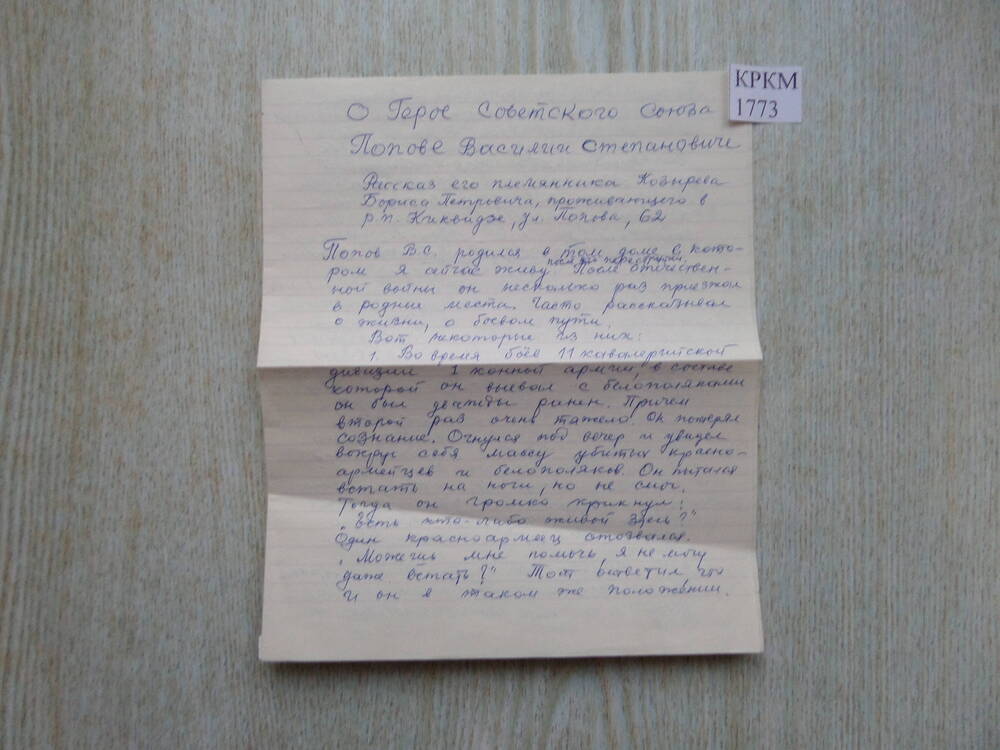 КРКМ
1773
О Герое Советского Союза
Попове Василии Степановиче
Рассказ его племянника Козырева
Бориса Петровича, проживающего в
р.п. Киквидзе, ул. Попова, 62
Попов В.С. родился в том доме в кото-
ром я сейчас живу после перестройки. После отечествен-
ной войны он несколько раз приезжал
в родные места. Часто рассказывал
о жизни, о боевом пути.
Вот некоторые из них:
1. Во время боёв 11 кавалерийской
дивизии 1 конной армии, в составе
которой он воевал с белополяками
он был дважды ранен. Причем
второй раз очень тяжело. Он потерял
сознание. Очнулся под вечер и увидел
вокруг себя массу убитых красно-
армейцев и белополяков. Он пытался
встать на ноги, но не смог.
Тогда он громко крикнул:
„Есть кто-либо живой здесь?"
Один красноармеец отозвался.
„Можешь мне помочь, я не могу
даже встать?" Тот ответил, что
и он в таком же положении.